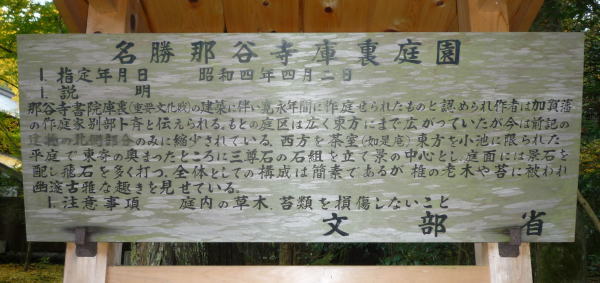 名勝那谷寺庫裏庭園
1. 指定年月日 昭和四年四月二日
1. 説 明
那谷寺書院庫裏(重要文化財)の建築に伴い寛永年間に作庭せられたものと認められ作者は加賀藩
の作庭家別部卜斉と伝えられる。もとの庭区は広く東方にまで広がっていたが今は前記の
建物の北側部分のみに縮少されている。西方を茶室(如是庵)東方を小池に限られた
平庭で東寄の奥まったところに三尊石の石組を立て景の中心とし、庭面には景石を
配し飛石を多く打つ。全体としての構成は簡素であるが椎の老木や苔に被われ
幽邃古雅な趣きを見せている。
1. 注意事項 庭内の草木、苔類を損傷しないこと
文部省